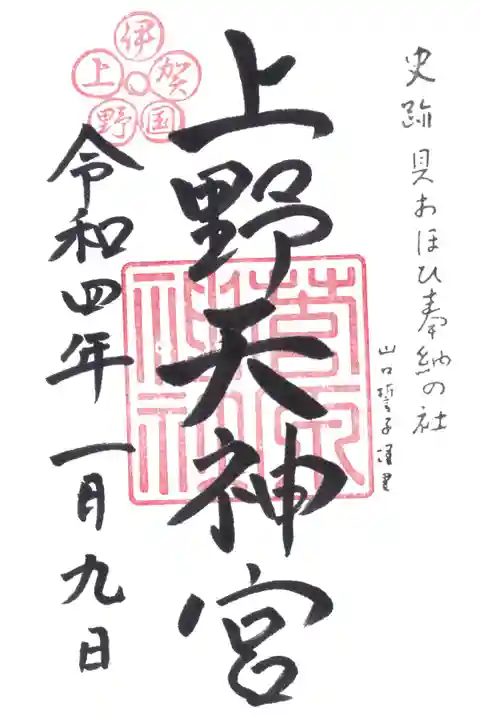 史跡 貝おほひ奉納の社
山口誓子謹書
上野天神宮
伊賀国上野
令和四年一月九日